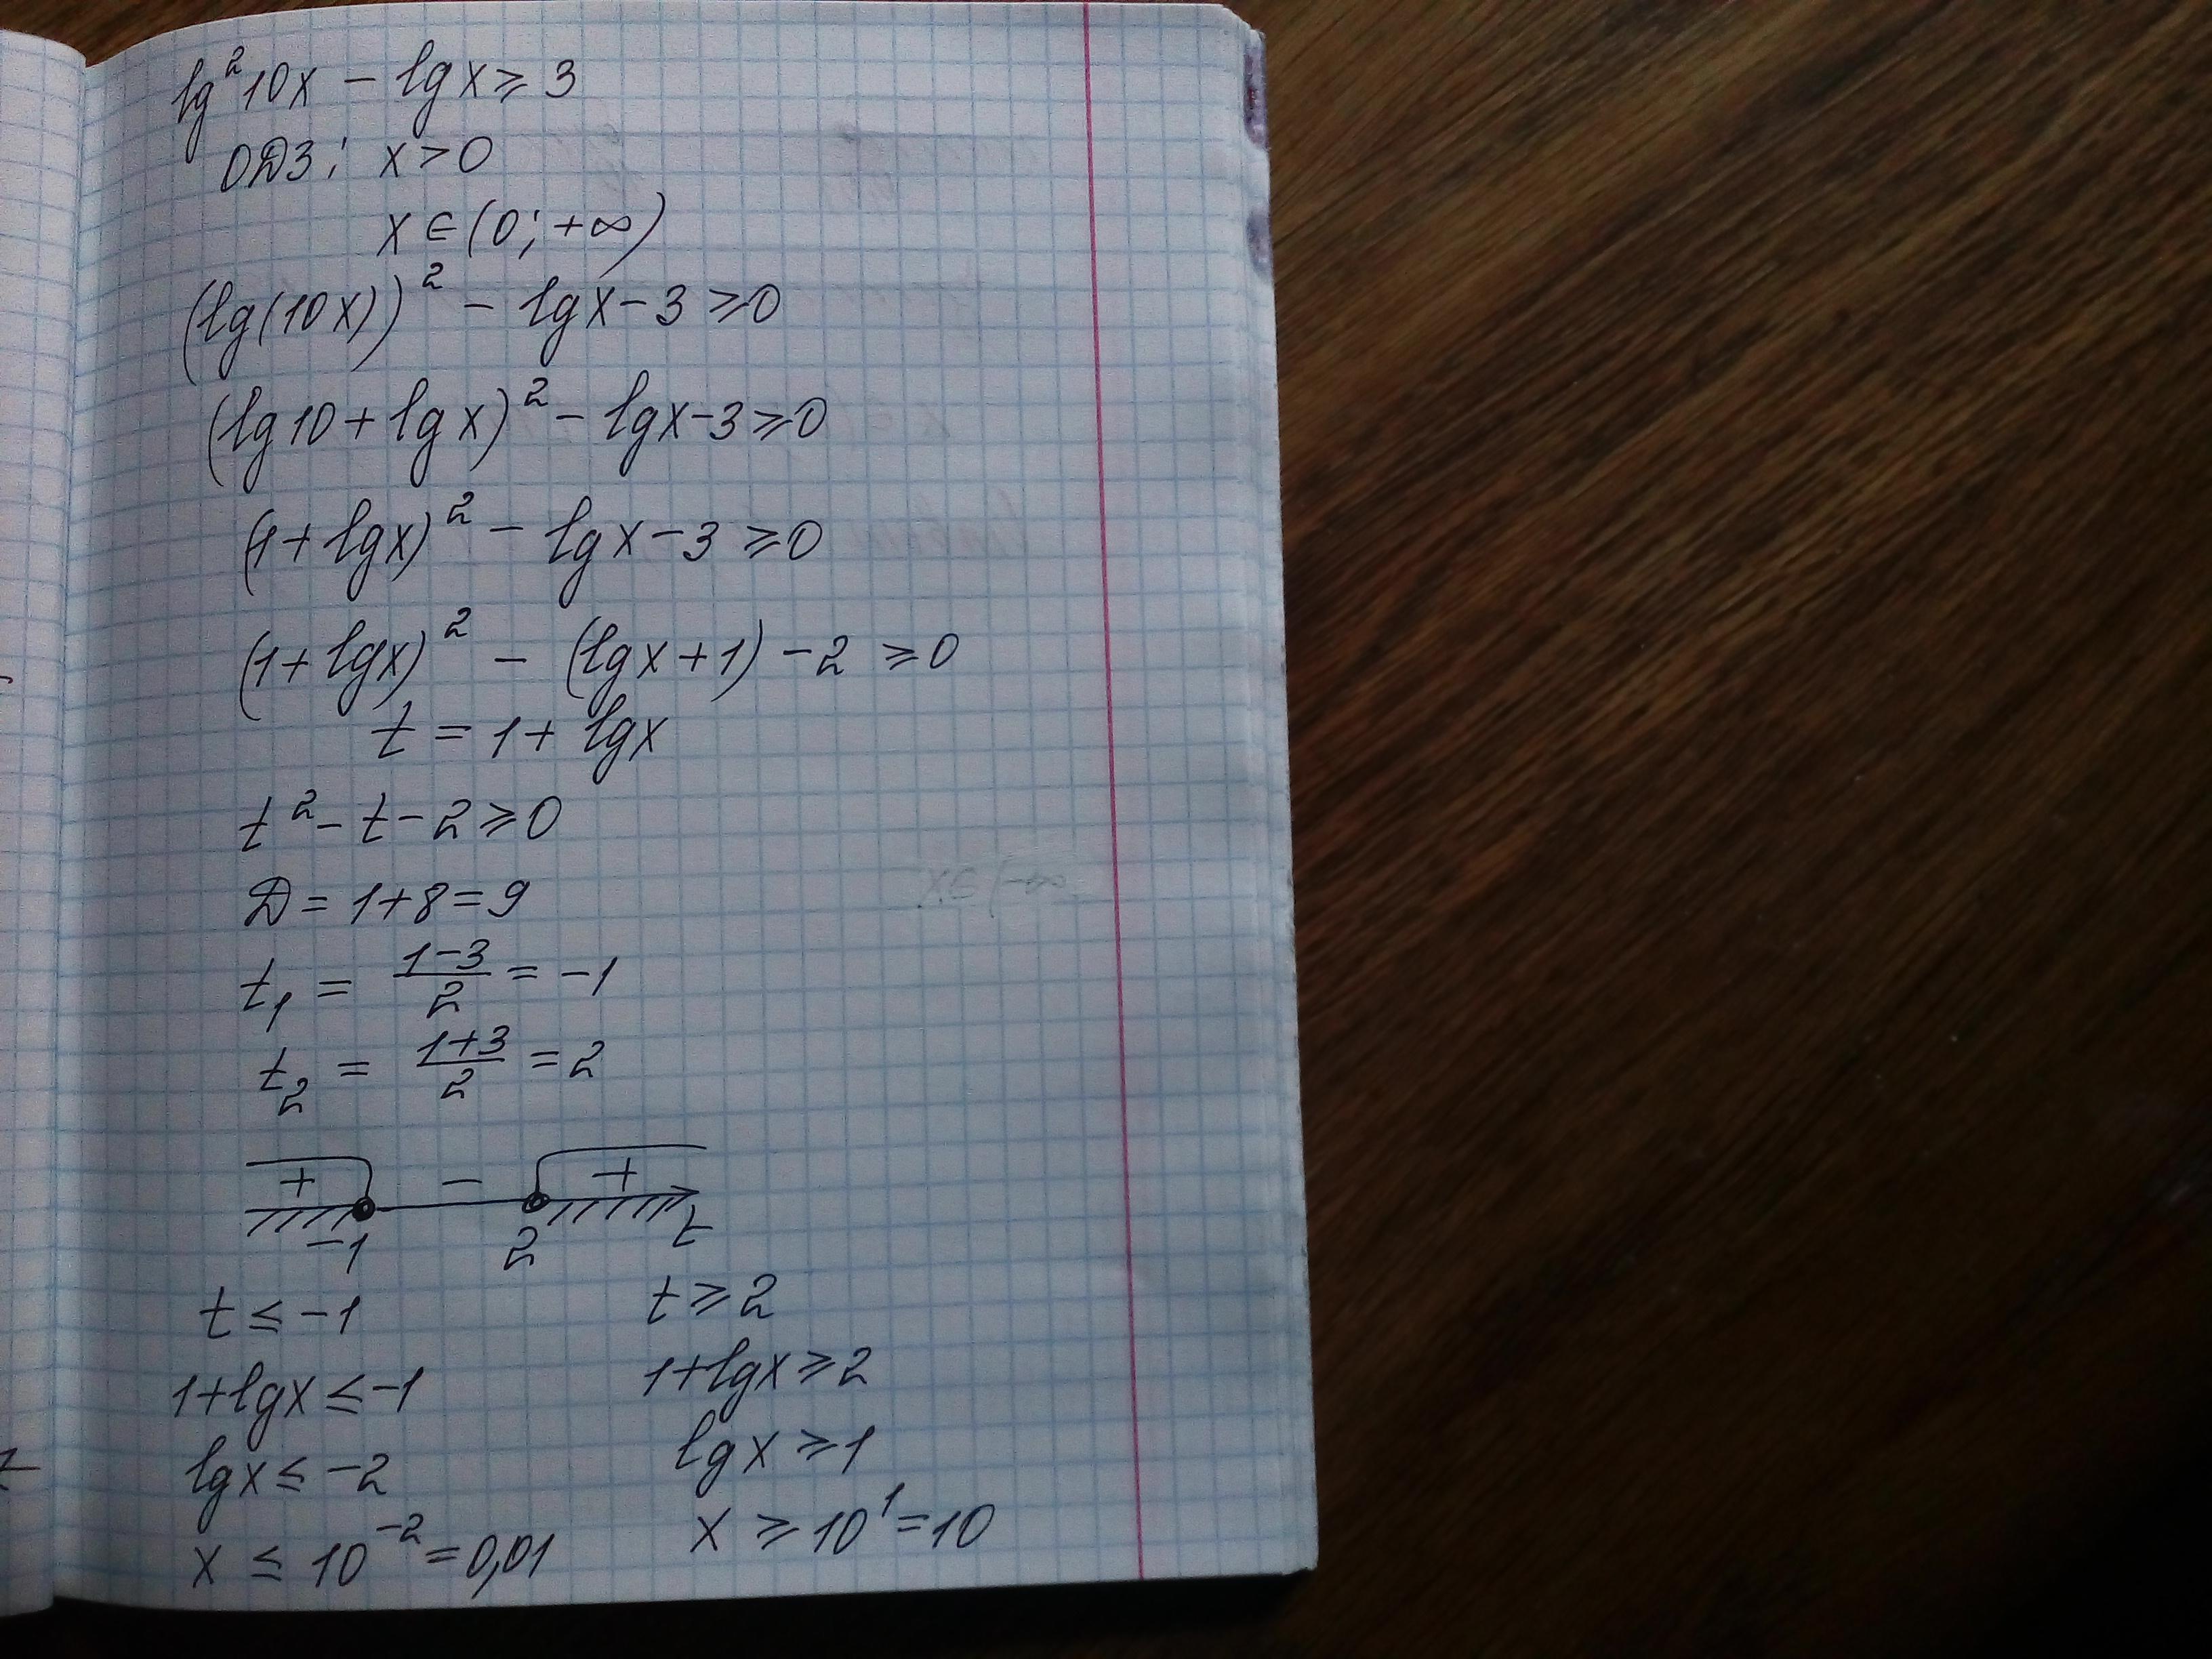 lg²10x - lgx ≥ 3
ОДЗ: x > 0
x ∈ (0; +∞)
(lg(10x))² - lgx - 3 ≥ 0
(lg10 + lgx)² - lgx - 3 ≥ 0
(1 + lgx)² - lgx - 3 ≥ 0
(1 + lgx)² - (lgx + 1) - 2 ≥ 0
t = 1 + lgx
t² - t - 2 ≥ 0
D = 1 + 8 = 9
t₁ = (1-3)/2 = -1
t₂ = (1+3)/2 = 2
+ - +
-1 2 t
t ≤ -1 t ≥ 2
1 + lgx ≤ -1 1 + lgx ≥ 2
lgx ≤ -2 lgx ≥ 1
x ≤ 10⁻² = 0,01 x ≥ 10¹ = 10